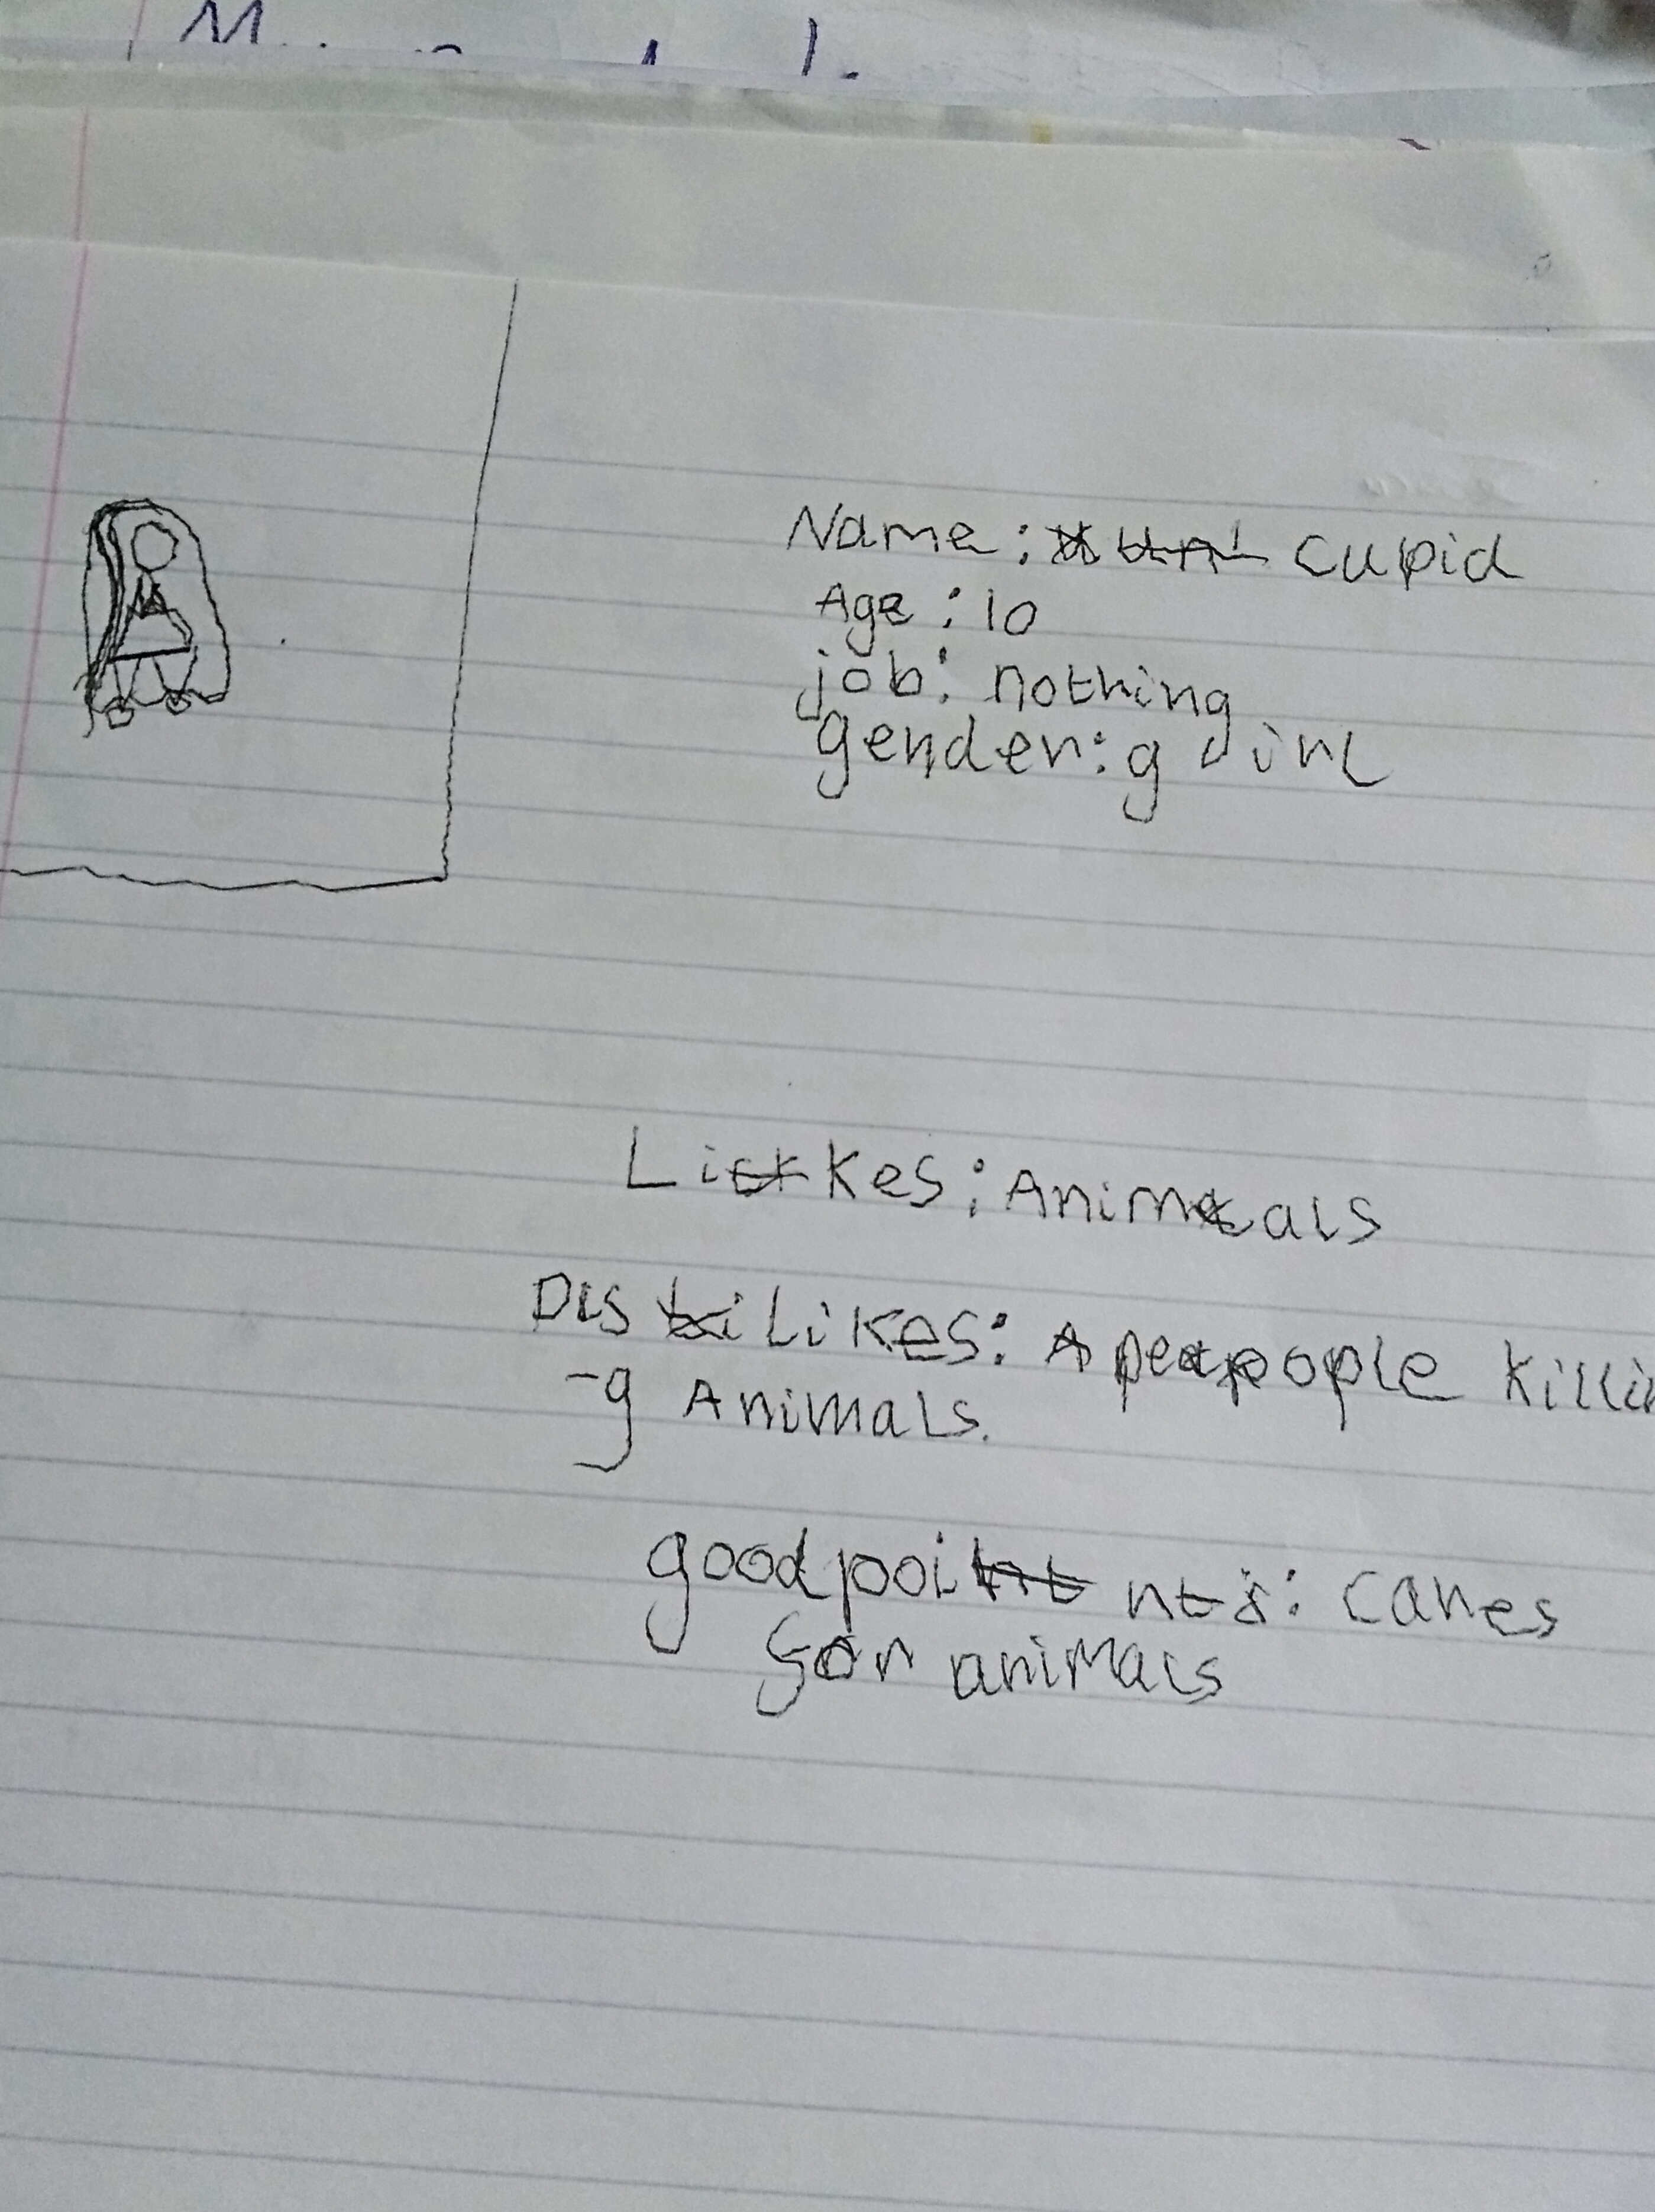 Name: Cupid
Age: 10
job: nothing
gender: girl
Likes: Animals
Dislikes: people killin
-g Animals.
good points: cares
for animals